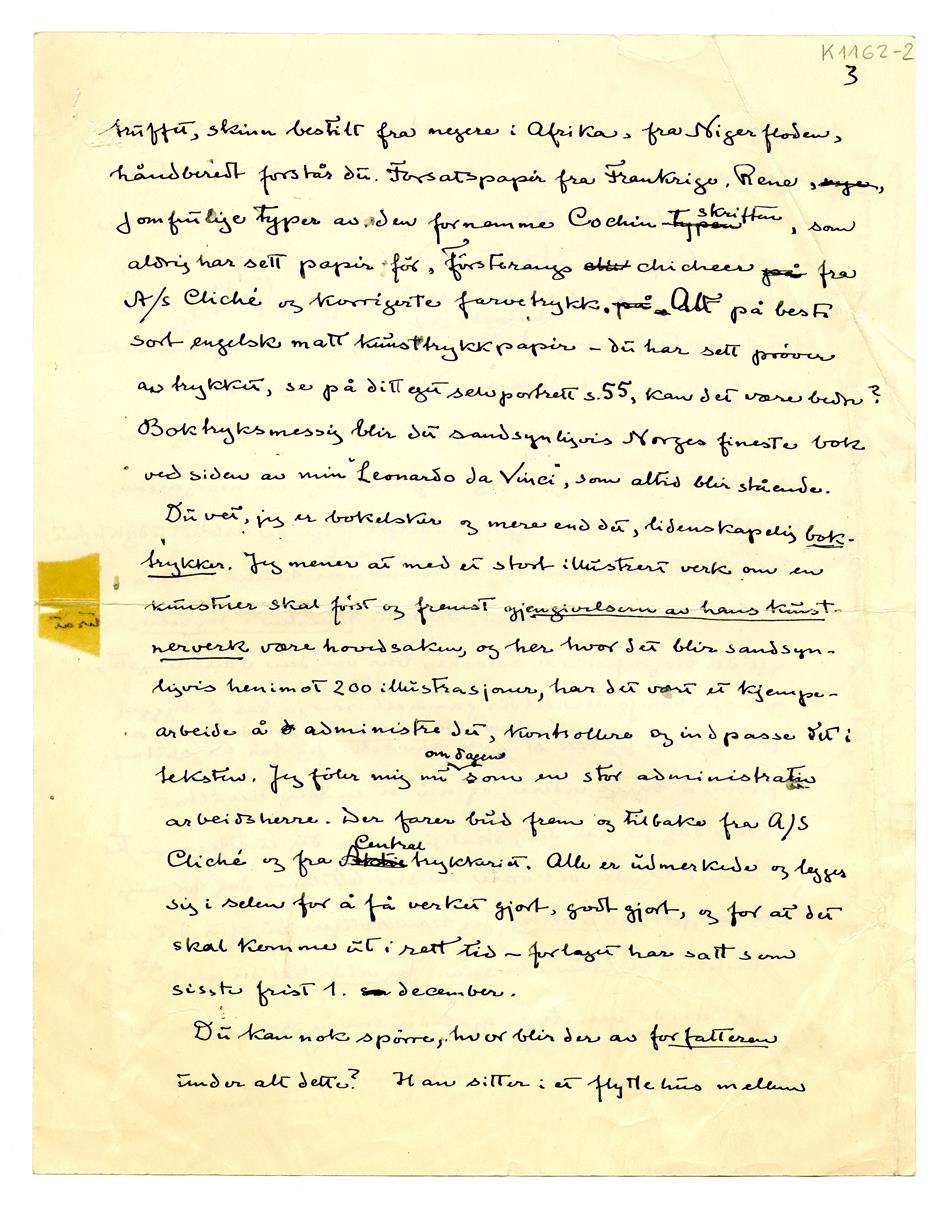 K1162-2
3
truffet, skinn bestilt fra negere i Afrika, fra Nigerfloden,
håndberedt forstår du. Forsatspapir fra Frankrige. Rene,
jomfruelige typer av den fornemme Cochin typen skriften, som
aldrig har sett papir før, Førsterangs chicheer på fra
A/s Cliché og korrigerte farvetrykk. på. Alt på beste
sort engelsk matt kunsttrykkpapir – du har sett prøver
av trykket, se på ditt eget selvportrett s. 55, kan det være bedre?
Boktryksmessig blir det sandsynligvis Norges fineste bok
ved siden av min "Leonardo da Vinci", som altid blir stående.
Du vet, jeg er bokelsker og mere end det, lidenskapelig bok-
trykker. Jeg mener at med et stort illustrert verk om en
kunstner skal først og fremst gjengivelsern av hans kunst-
nerverk være hovedsaken, og her hvor det blir sandsyn-
ligvis henimot 200 illustrasjoner, har det vært et kjempe-
arbeide å administre det, kontrollere og indpasse det i
teksten. Jeg føler mig nu om dagen som en stor administrativ
arbeidsherre. Der farer bud frem og tilbake fra A/S
Cliché og fra Centraltrykkeriet. Alle er udmerkede og legger
sig i selen for å få verket gjort, godt gjort, og for at det
skal komme ut i rett tid – forlaget har satt som
sisste frist 1. december.
Du kan nok spørre, hvor blir der av forfatteren
under alt dette? Han sitter i et flyttehus mellem